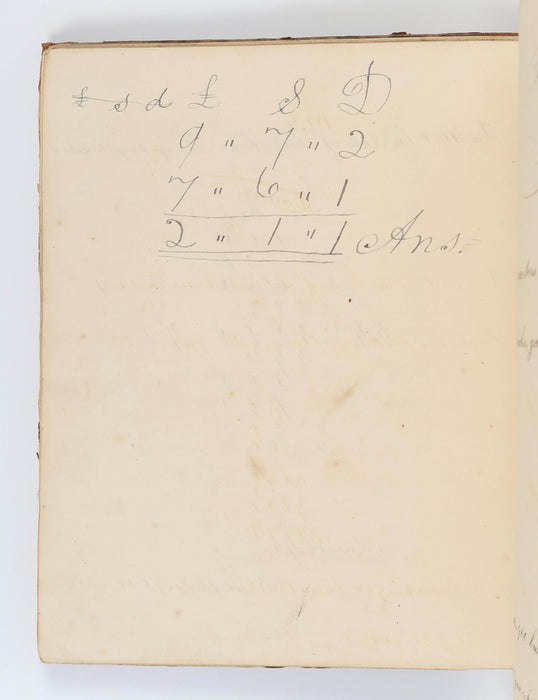 £ s d £ S D
9 " 7 " 2
7 " 6 " 1
2 " 1 " 1 Ans.